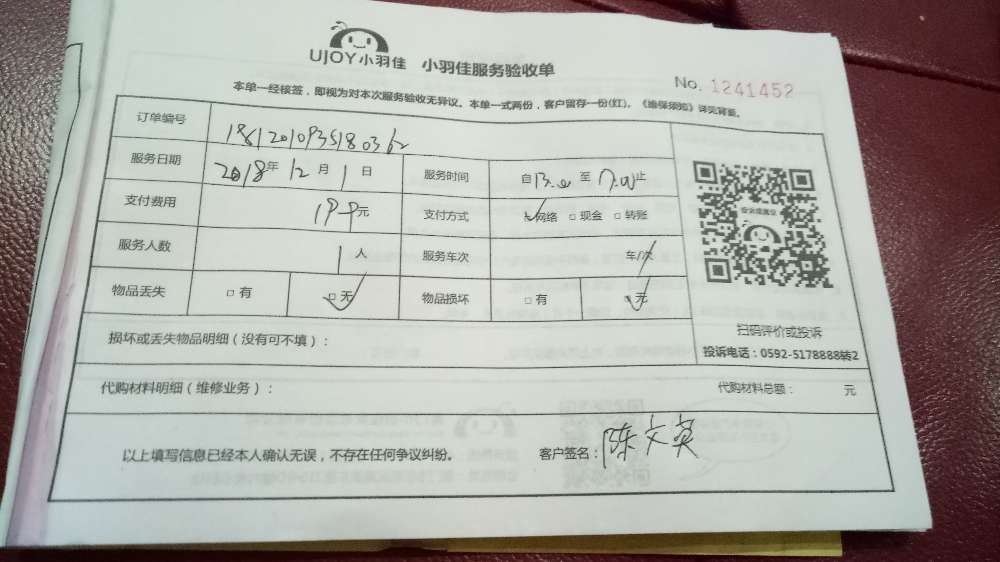 UJOY小羽佳 小羽佳服务验收单
No. 1241452
本单一经核签，即视为对本次服务验收无异议。本单一式两份，客户留存一份(红)。《维保须知》详见背面。
订单编号
服务日期 2018年 12月 1日 服务时间 自 至 止
支付费用 元 支付方式 网络 □ 现金 □ 转账
服务人数 1人 服务车次 车/次
物品丢失 □ 有 □ 无 物品损坏 □ 有 □ 无
扫码评价或投诉
投诉电话：0592-5178888转2
损坏或丢失物品明细（没有可不填）：
代购材料明细（维修业务）： 代购材料总额： 元
以上填写信息已经本人确认无误，不存在任何争议纠纷。 客户签名：陈文英